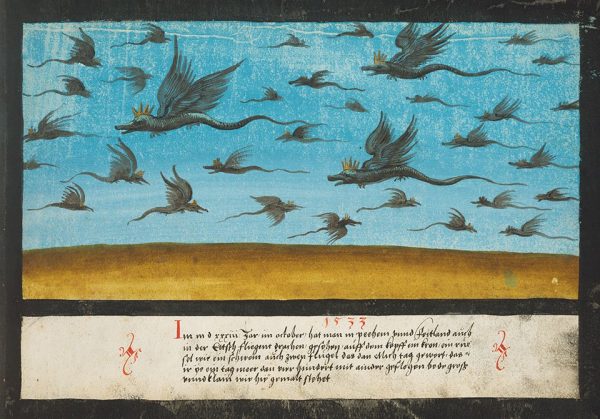 1533
Im m d xxxiii Jar im october hat man in pechem vnnd foitland auch
in der Lufft fliegent drachen gesehen auff dem kopff ein kron ein rüe
sel wie ein schwein auch zwen flügel des dan etlich tag gewert das
ir ye ein tag meer dan vier hundert mit ainder geflogen bede gross
vnnd klain wir hir gemalt stehet